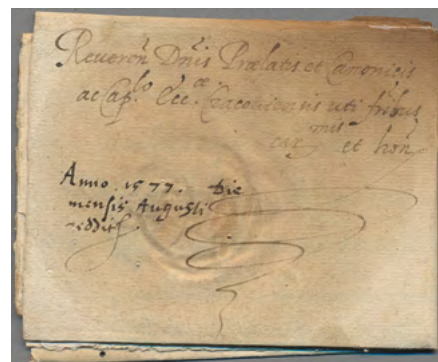 Reveren̄ Dn̄is Prælatis et Canonicis
ac Cap.lo Ecc.æ Cracoviensis uti fr̄ibus
car.mis et hon̄
Anno . 1577 . Die
mensis Augusti
reddit